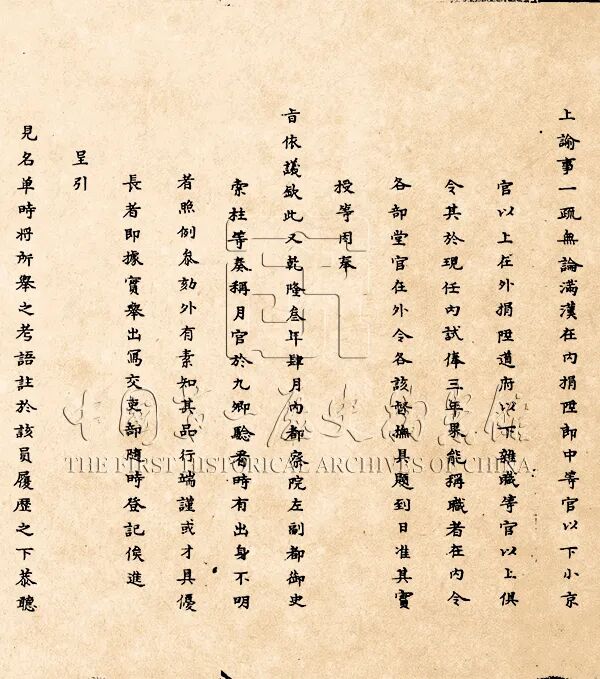 上諭事一疏無論滿漢在內捐陞郎中等官以下小京
官以上在外捐陞道府以下雜職等官以上俱
令其於現任內試俸三年果能稱職者在內令
各部堂官在外令各該督撫具題到日准其實
授等因奉
旨依議欽此又乾隆叁年肆月內都察院左副都御史
索柱等奏稱月官於九卿驗看時有出身不明
者照例叅劾外有素知其品行端謹或才具優
長者即據實舉出寫交吏部隨時登記俟進
呈引
見名单時將所舉之考語註於該員履歷之下恭聽
中国第一歷史档案館
THE FIRST HISTORICAL ARCHIVES OF CHINA